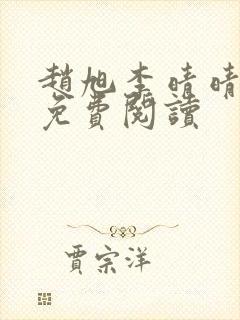 趙旭李晴晴
免費閱讀
賈宗洋